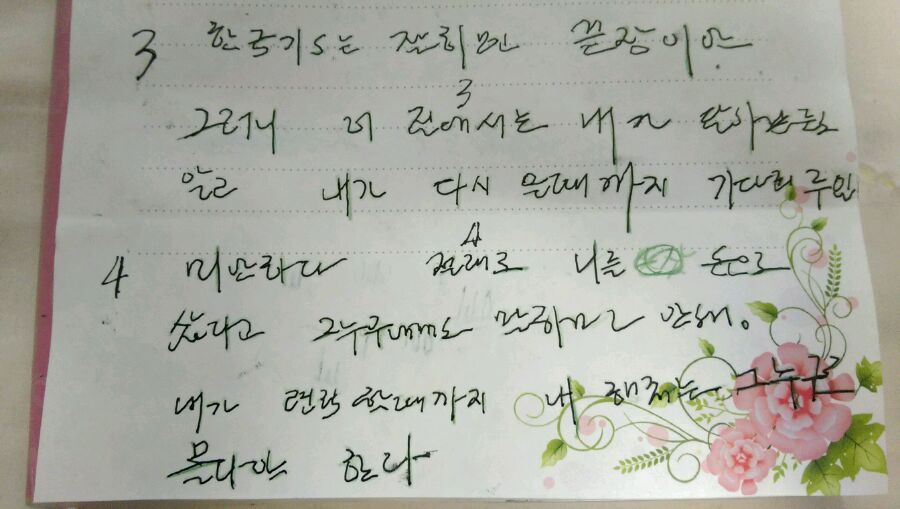 3 한국기S는 잘하면 끝장이안
그러니 너 3 집에서는 내가 말하는
알고 내가 다시 올때까지 가다려주인
4 미안하다 4 절대로 너를 돈으로
샀다고 그누구에도 말하며 안돼.
내가 연락 할때까지 내 해주는 그누구도
몰나야 한다.